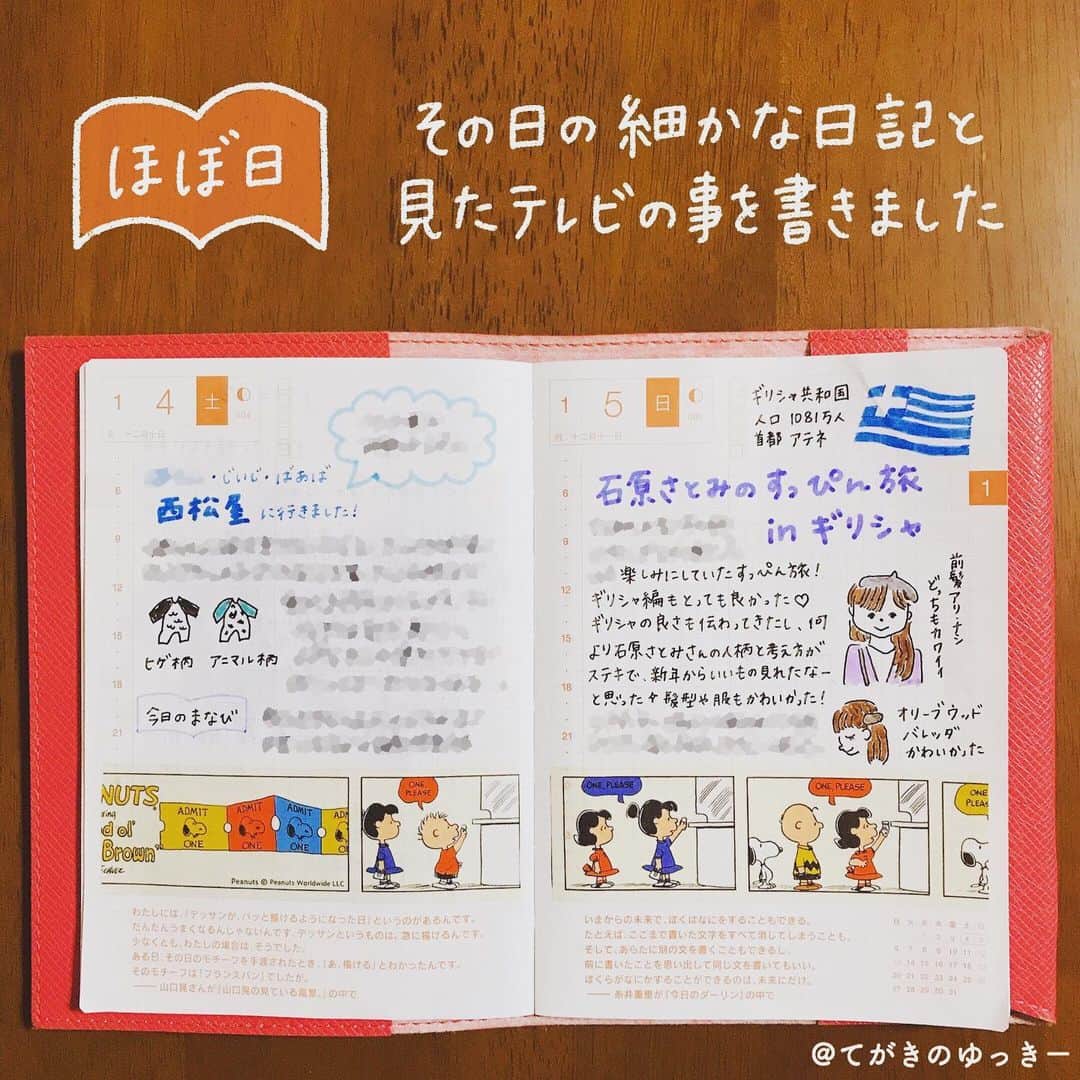 ほぼ日
その日の細かな日記と
見たテレビの事を書きました
1 4 土
・じいじ・ばあば
西松屋 に行きました!
6
9
12
15
18
21
ヒゲ柄
アニマル柄
今日のまなび
1 5 日
ギリシャ共和国
人口 1081万人
首都 アテネ
1
石原さとみのすっぴん旅
in ギリシャ
6
9
12
15
18
21
楽しみにしていたすっぴん旅!
ギリシャ編もとっても良かった♡
ギリシャの良さも伝わってきたし、何
より石原さとみさんの人柄と考え方が
ステキで、新年からいいもの見れたなー
と思った 髪型や服もかわいかった!
前髪アリ・ナシ
どっちもカワイイ
オリーブウッド
バレッタ
かわいかった
NUTS
ol'
Brown"
ADMIT
ONE
ADMIT
ONE
ADMIT
ONE
Peanuts © Peanuts Worldwide LLC
ONE, PLEASE
ONE, PLEASE
ONE, PLEASE
わたしには、「デッサンが、パッと描けるようになった日」というのがあるんです。
だんだんうまくなるんじゃないんです。デッサンというものは、急に描けるんです。
少なくとも、わたしの場合は そうでした。
ある日、その日のモチーフを手渡されたとき、「あ、描ける」とわかったんです。
そのモチーフは「フランスパン」でしたが。
—— 山口晃さんが『山口晃の見ている風景。』の中で
いまからの未来で、ぼくはなにをすることもできる。
たとえば、ここまで書いた文字をすべて消してしまうことも。
そして、あらたに別の文を書くこともできるし、
前に書いたことを思い出して同じ文を書いてもいい。
ぼくらがなにかすることができるのは、未来にだけ。
—— 糸井重里が『今日のダーリン』の中で
@てがきのゆっきー